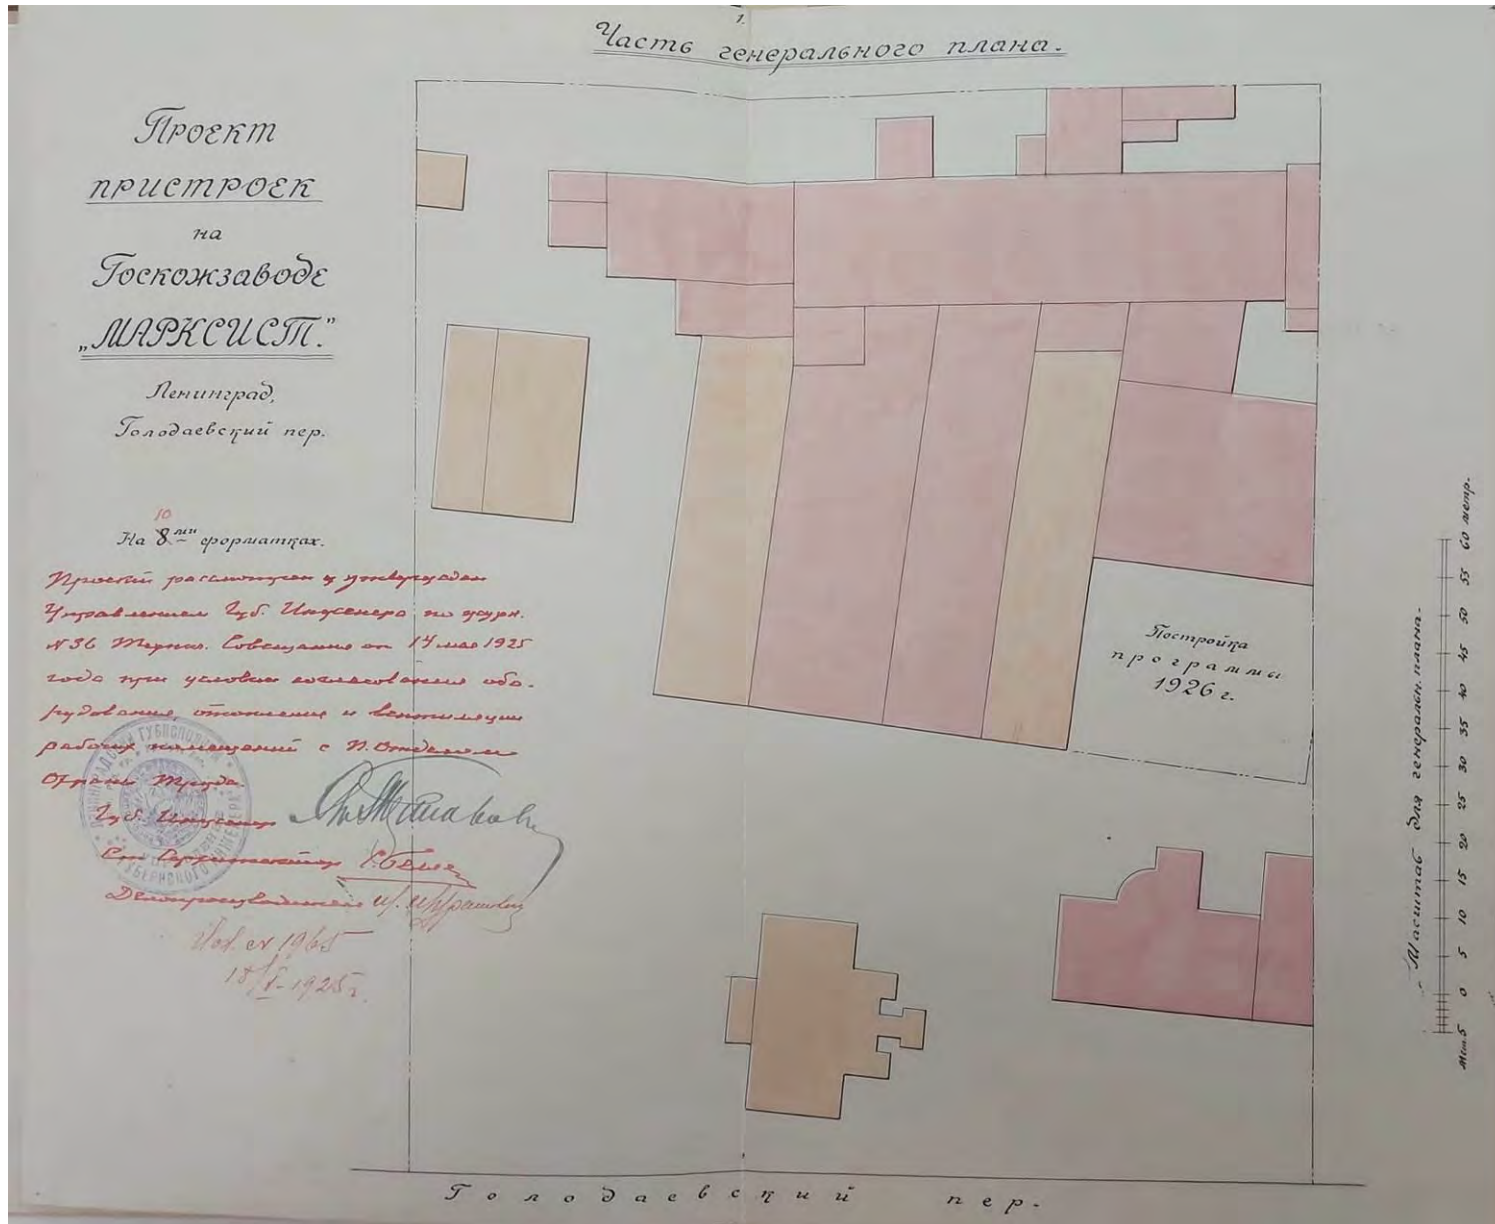 1.
Часть генерального плана.
Проект
пристроек
на
Госкожзаводе
„МАРКСИСТ."
Ленинград,
Голодаевский пер.
10
На 8ми форматках.
Проект рассмотрен и утвержден
Управлением Губ. Инженера по журн.
№36 Техник. Совещания от 14 мая 1925
года при условии согласования обо-
рудования, отопления и вентиляции
рабочих помещений с П. Отделом
Охраны Труда.
Губ. Инженер
Ст. Архитектор
Делопроизводитель
1965
18/V-1925г.
ГУБЕРНСКОГО ИНЖЕНЕРА
Постройка
программы
1926 г.
Масштаб для генеральн. плана.
мет. 5 0 5 10 15 20 25 30 35 40 45 50 55 60 метр.
Голодаевский пер.